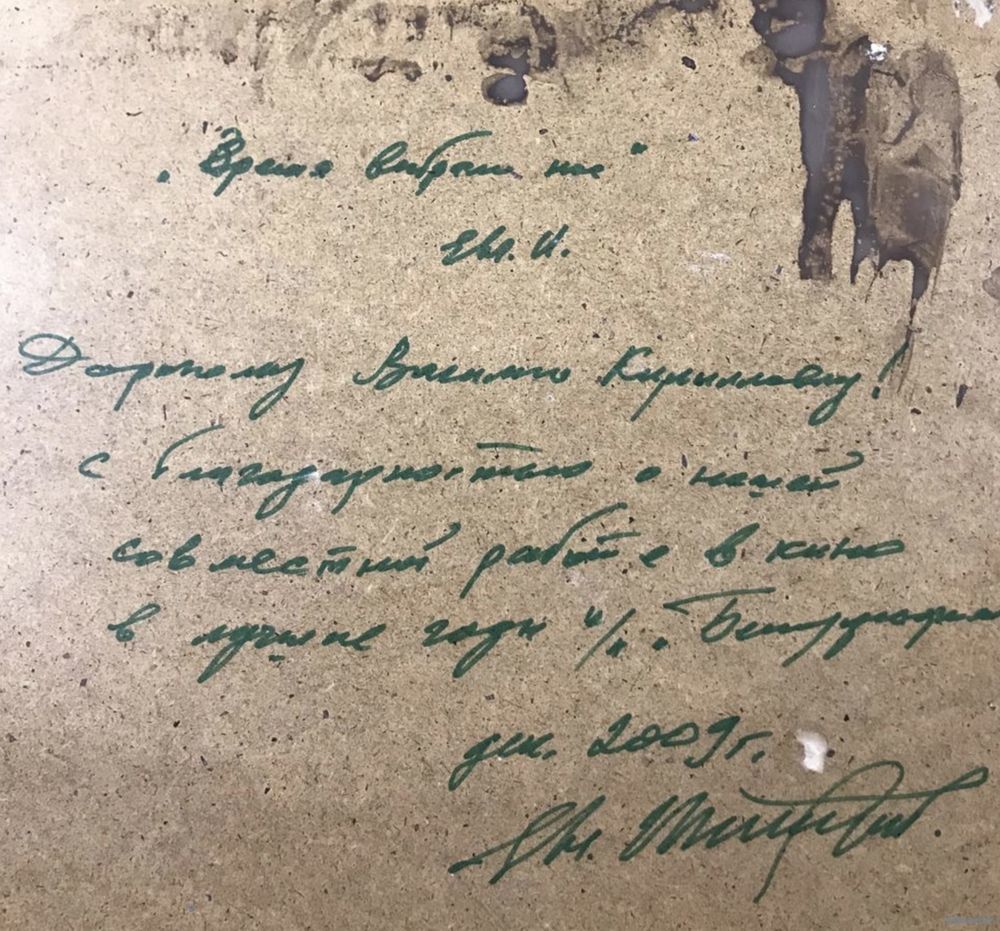 „Время выбрало нас"
Евг. И.
Дорогому Василию Кирилловичу!
с благодарностью о нашей
совместной работе в кино
в лучшие годы к/с. Беларусьфильм
дек. 2009 г.
Евг.